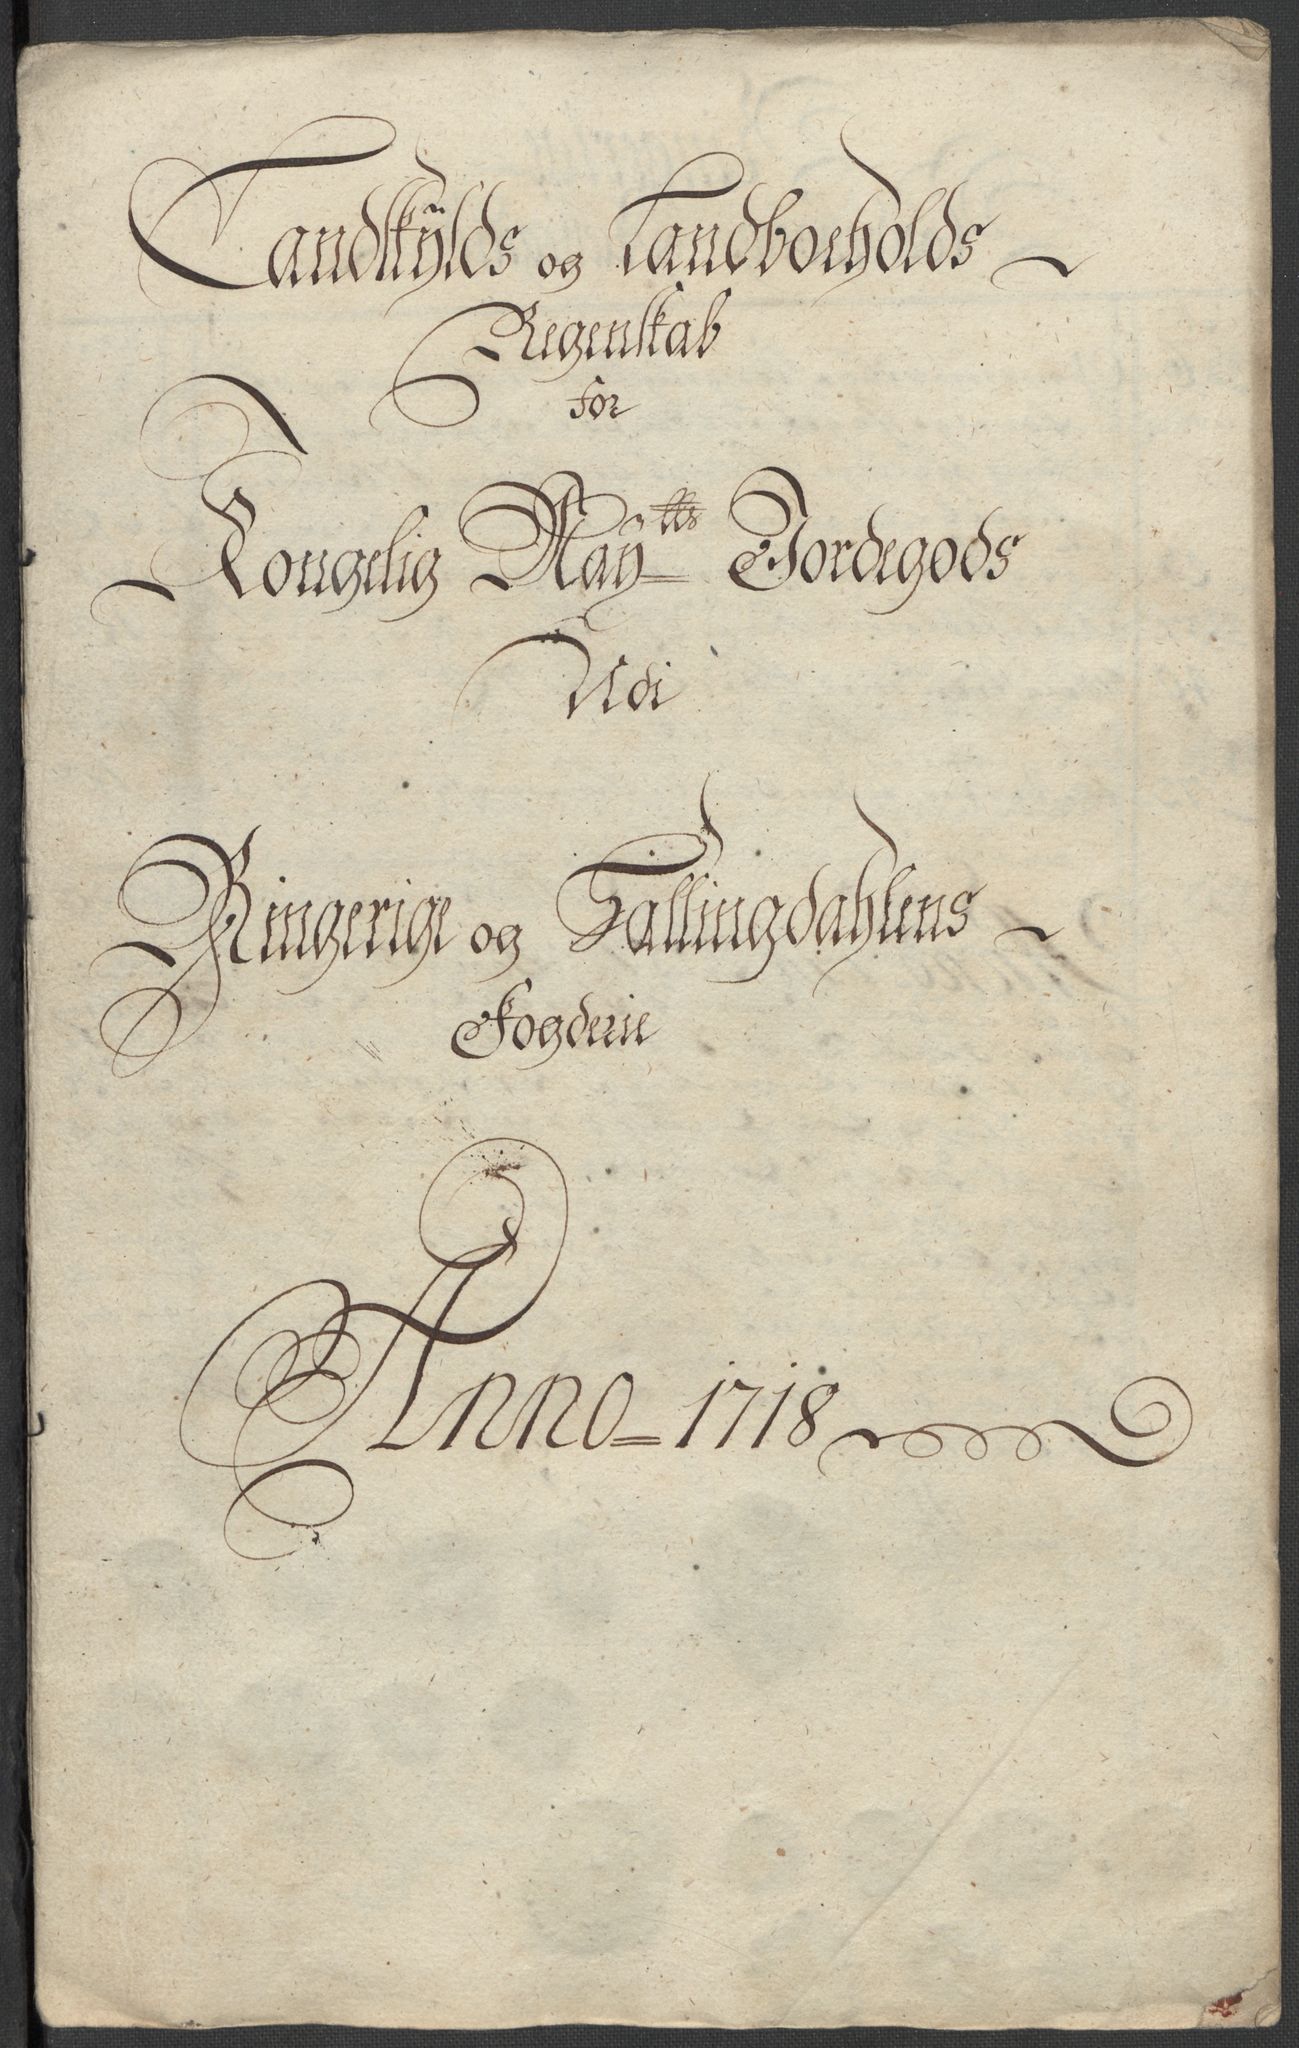 Landskÿlds og Landboeholds
Regenskab
for
Kongelig Maÿtts Jordegods
Udi
Ringerige og Hallingdahlens
Fogderie
Anno 1718